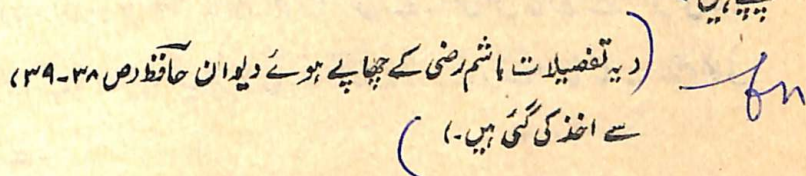 (یہ تفصیلات ہاشم رضی کے چھاپے ہوئے دیوان حافظ (ص ۳۸-۳۹)
سے اخذ کی گئی ہیں۔)
fn